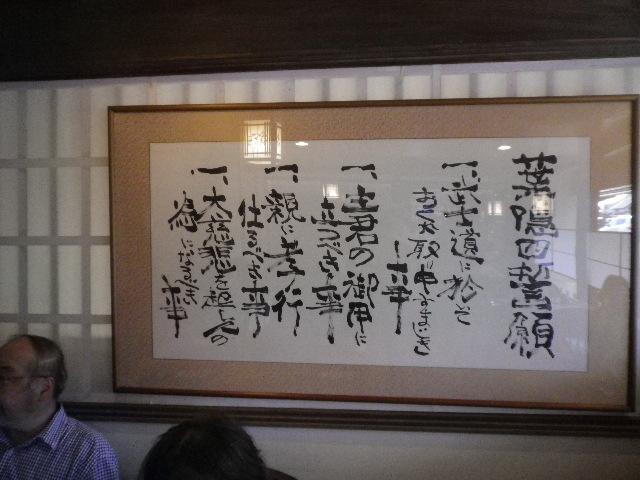 葉隠四誓願
一、武士道に於て
おくれ取り申すまじき
事
一、主君の御用に
立つべき事
一、親に孝行
仕るべき事
一、大慈悲を起し人の
為になるべき
事